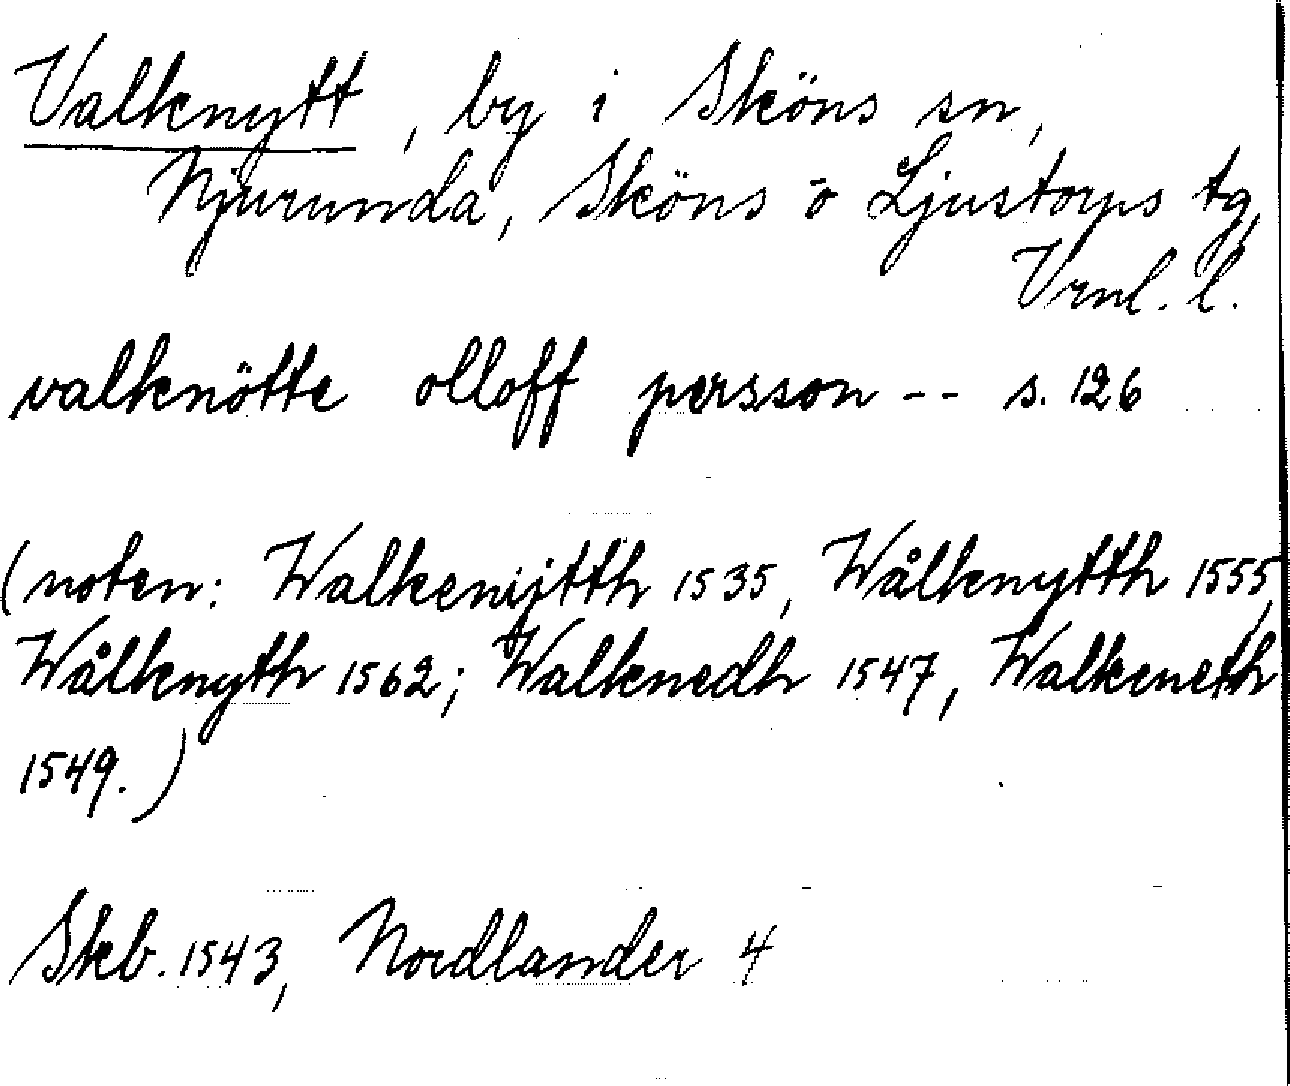 Valknytt, by i Sköns sn,
Njurunda, Sköns o Ljustorps tg,
Vrnl. l.
valknötte olloff persson -- s. 126
(noten: Walkenijtth 1535, Wålknytth 1555,
Wålknyth 1562; Walknedh 1547, Walkeneth
1549.)
Skb. 1543, Nordlander 4